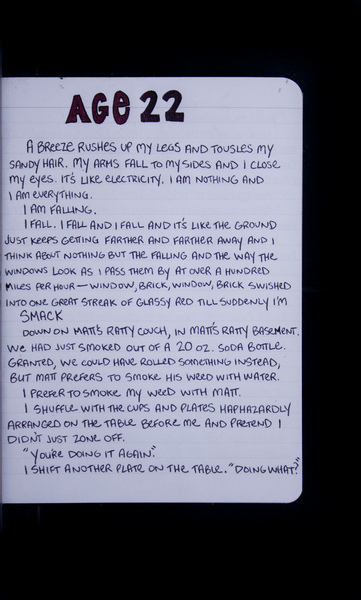 AGE 22
A BREEZE RUSHES UP MY LEGS AND TOUSLES MY
SANDY HAIR. MY ARMS FALL TO MY SIDES AND I CLOSE
MY EYES. IT'S LIKE ELECTRICITY. I AM NOTHING AND
I AM EVERYTHING.
I AM FALLING.
I FALL. I FALL AND I FALL AND IT'S LIKE THE GROUND
JUST KEEPS GETTING FARTHER AND FARTHER AWAY AND I
THINK ABOUT NOTHING BUT THE FALLING AND THE WAY THE
WINDOWS LOOK AS I PASS THEM BY AT OVER A HUNDRED
MILES PER HOUR — WINDOW, BRICK, WINDOW, BRICK SWISHED
INTO ONE GREAT STREAK OF GLASSY RED TILL SUDDENLY I'M
SMACK
DOWN ON MATT'S RATTY COUCH, IN MATT'S RATTY BASEMENT.
WE HAD JUST SMOKED OUT OF A 20 OZ. SODA BOTTLE.
GRANTED, WE COULD HAVE ROLLED SOMETHING INSTEAD,
BUT MATT PREFERS TO SMOKE HIS WEED WITH WATER.
I PREFER TO SMOKE MY WEED WITH MATT.
I SHUFFLE WITH THE CUPS AND PLATES HAPHAZARDLY
ARRANGED ON THE TABLE BEFORE ME AND PRETEND I
DIDN'T JUST ZONE OFF.
"YOU'RE DOING IT AGAIN."
I SHIFT ANOTHER PLATE ON THE TABLE. "DOING WHAT?"